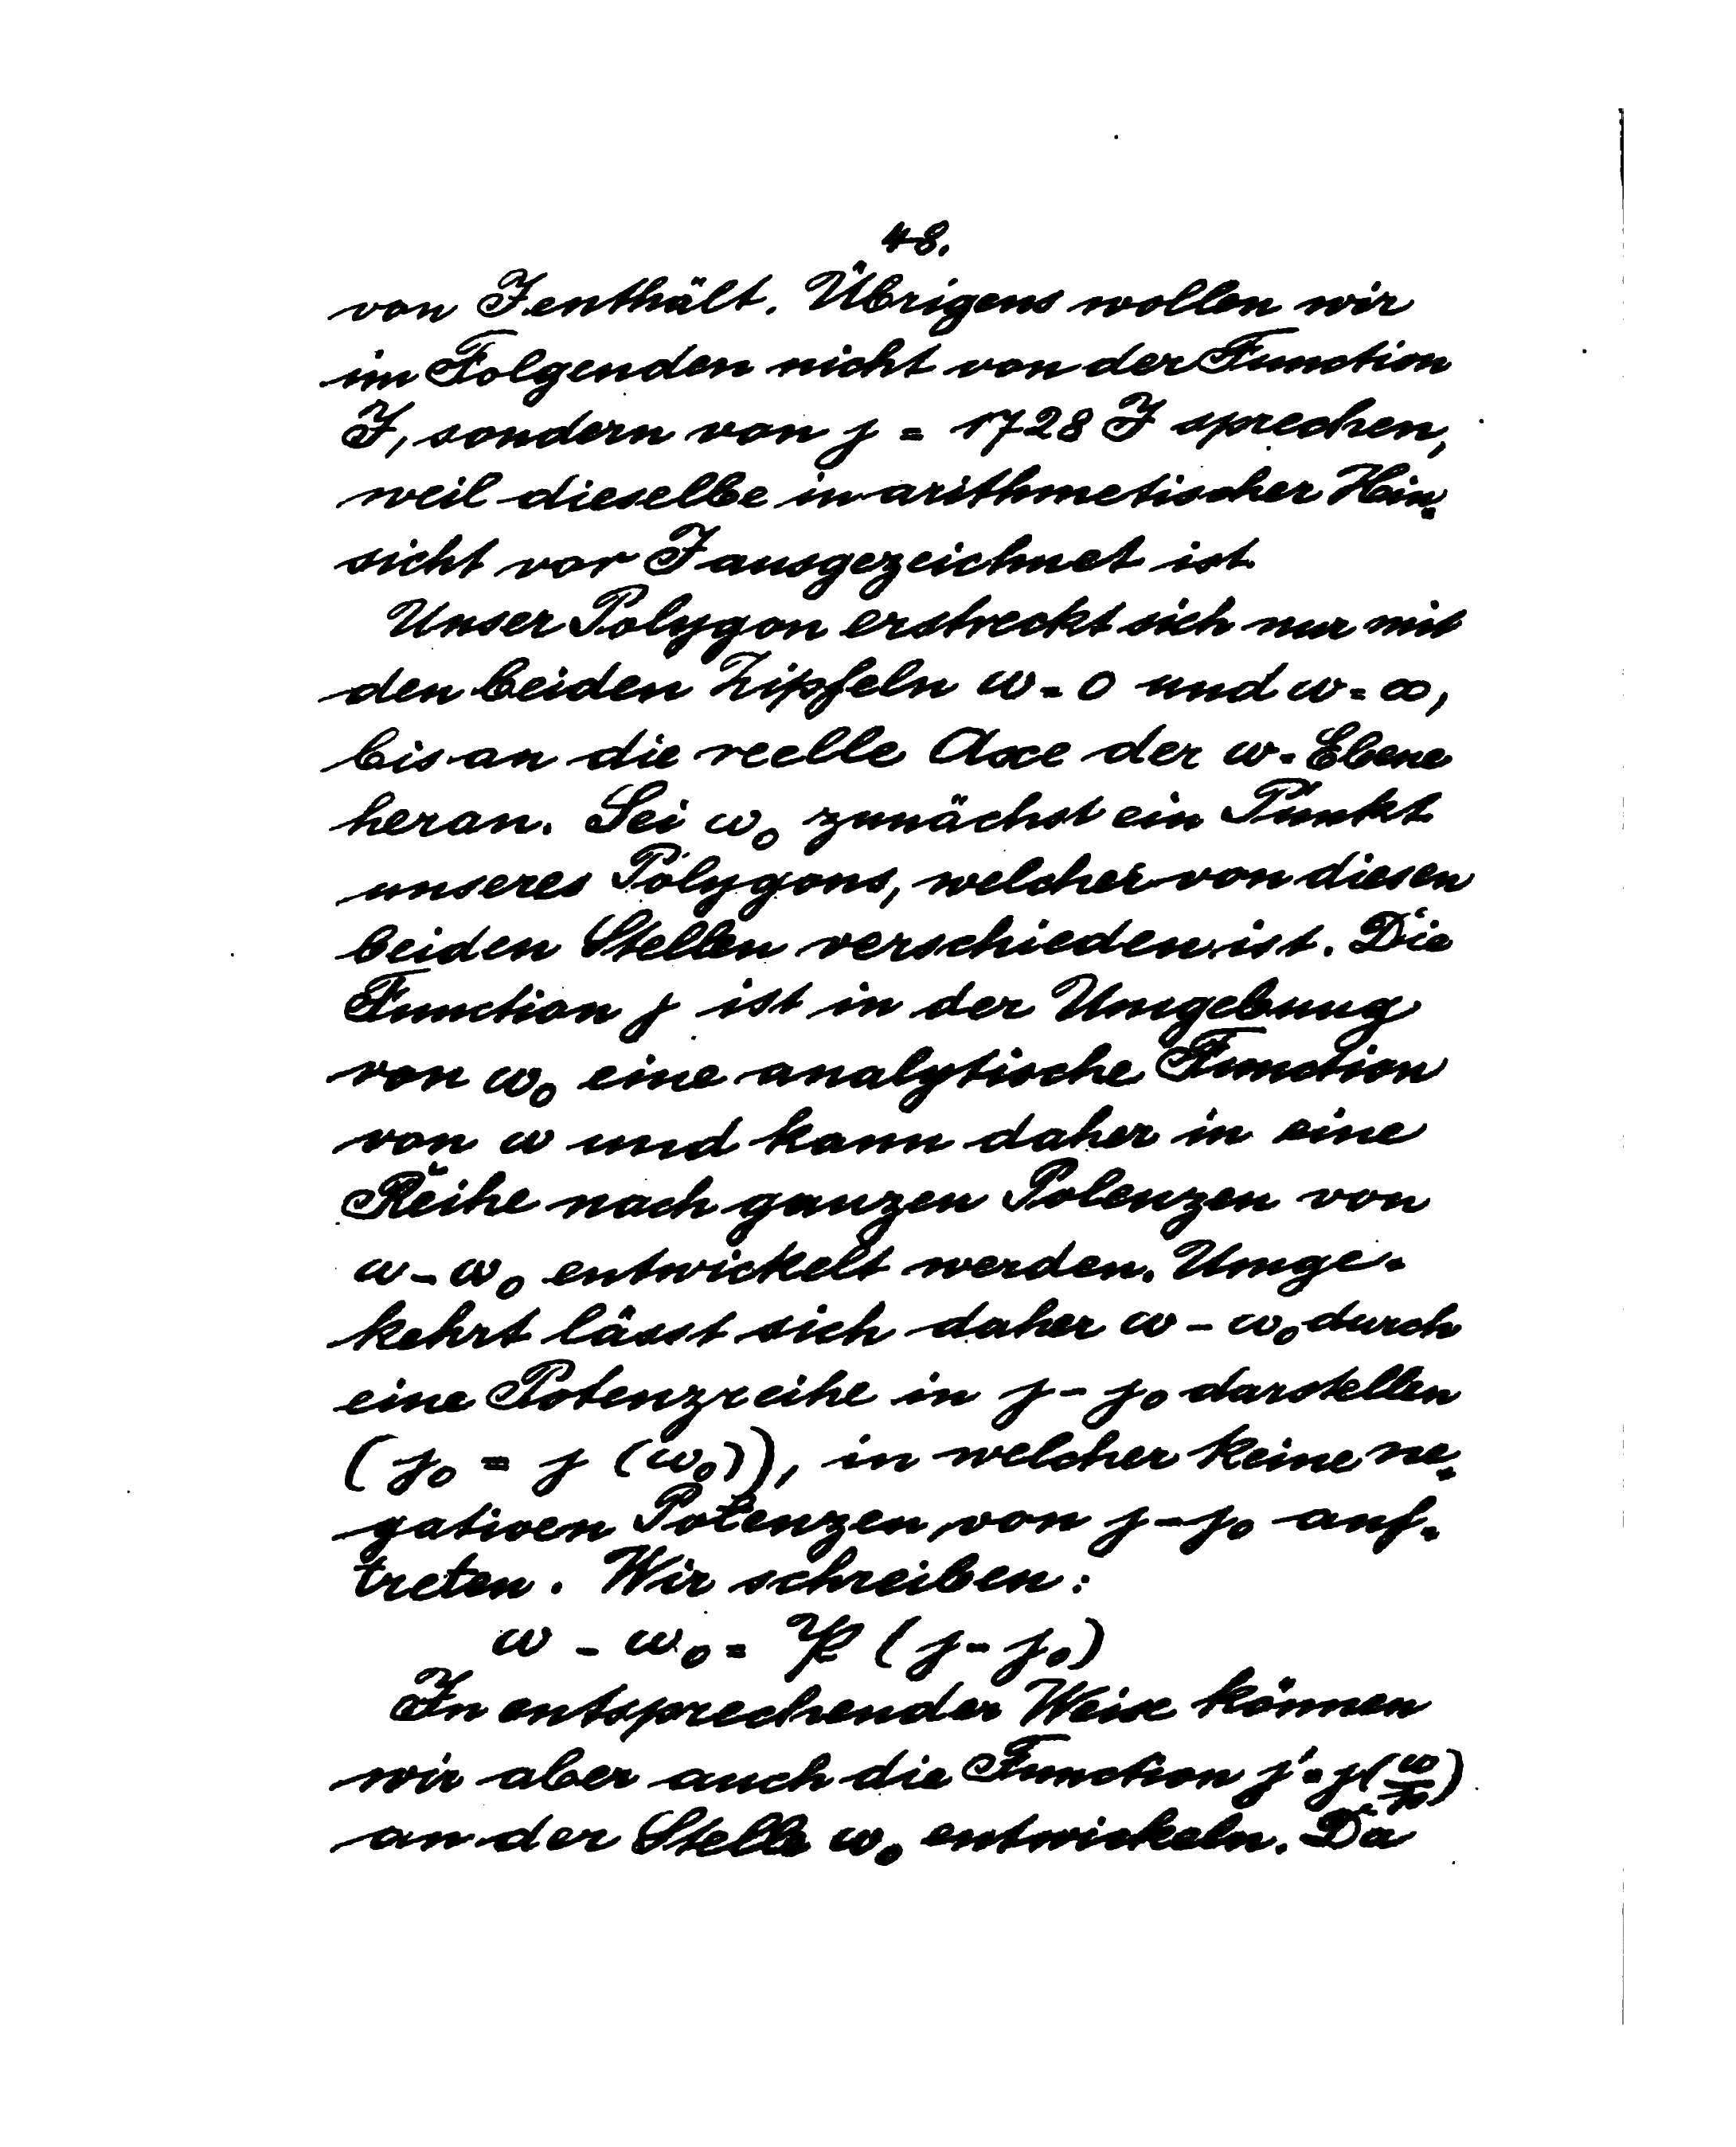 48.
von J enthält. Übrigens wollen wir
im Folgenden nicht von der Function
J, sondern von j = 1728 J sprechen,
weil dieselbe in arithmetischer Hin-
sicht vor J ausgezeichnet ist.
Unser Polygon erstreckt sich nur mit
den beiden Zipfeln ω = 0 und ω = ∞,
bis an die reelle Axe der ω-Ebene
heran. Sei ω₀ zunächst ein Punkt
unseres Polygons, welcher von diesen
beiden Stellen verschieden ist. Die
Function j ist in der Umgebung
von ω₀ eine analytische Function
von ω und kann daher in eine
Reihe nach ganzen Potenzen von
ω - ω₀ entwickelt werden. Umge-
kehrt lässt sich daher ω - ω₀ durch
eine Potenzreihe in j - j₀ darstellen
(j₀ = j (ω₀)), in welcher keine ne-
gativen Potenzen von j - j₀ auf-
treten. Wir schreiben:
ω - ω₀ = 𝔓 (j - j₀)
In entsprechender Weise können
wir aber auch die Function j' = j(ω/n)
an der Stelle ω₀ entwickeln. Da